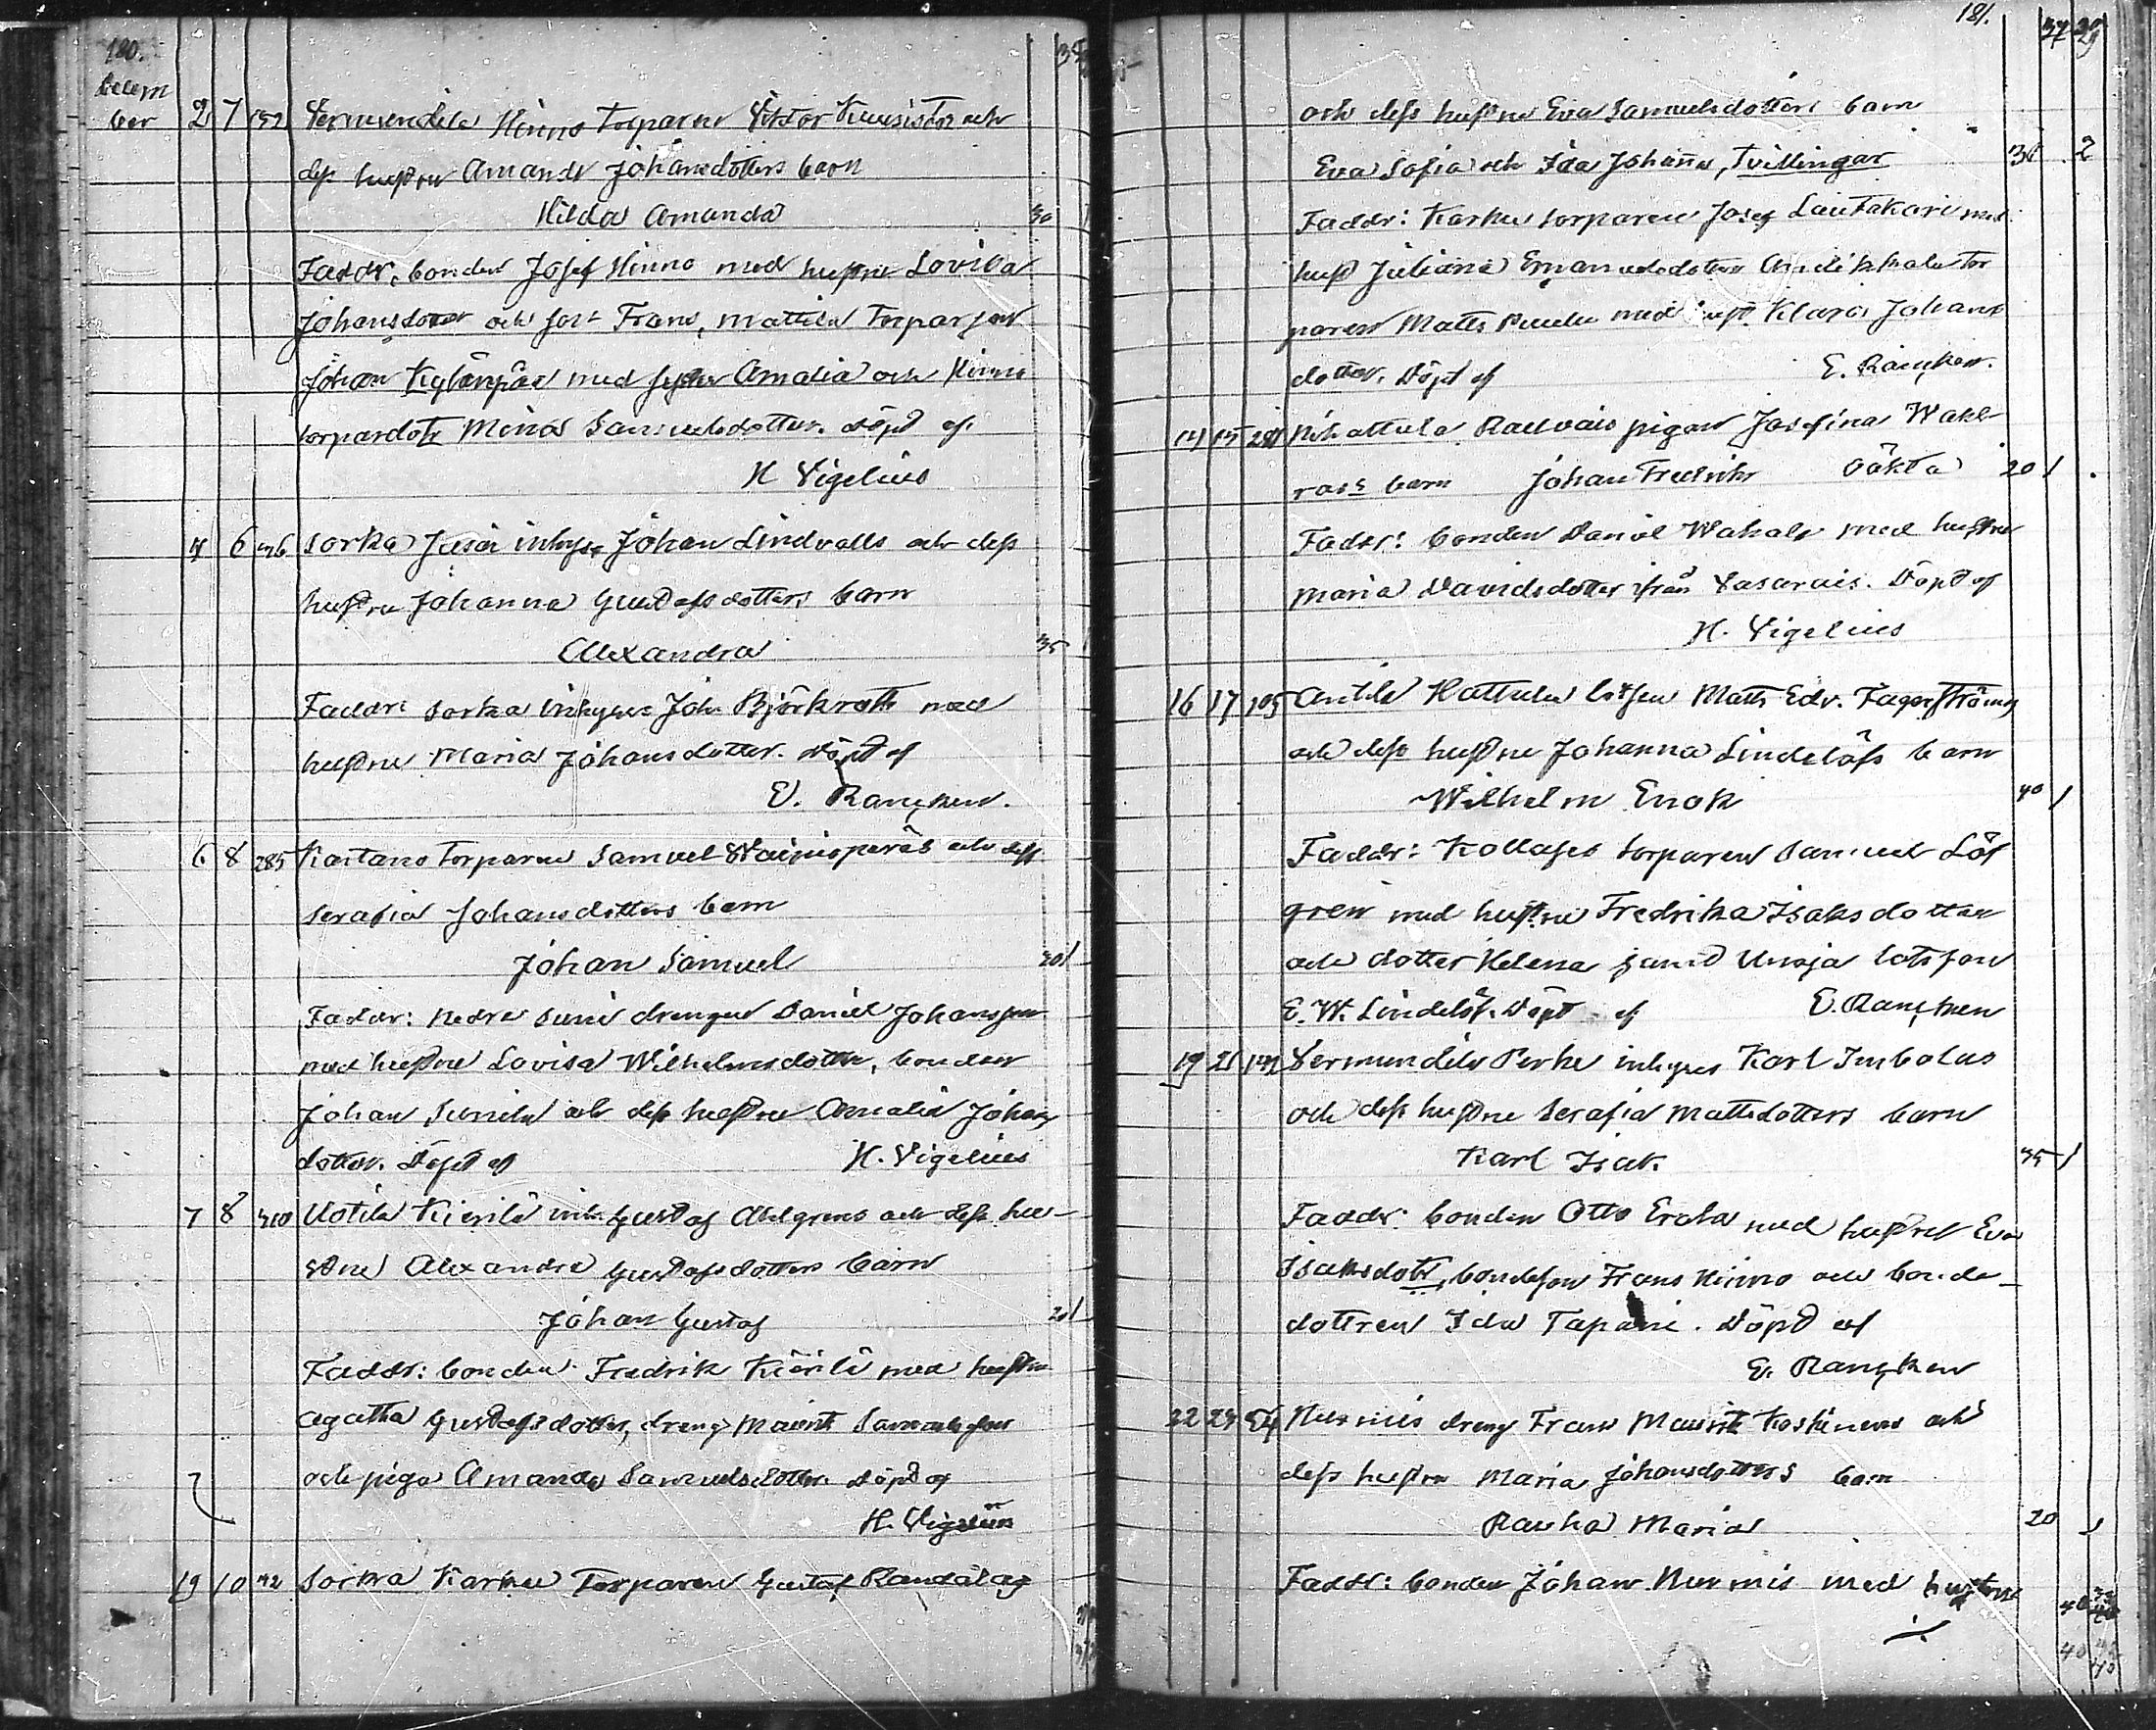 180.
Decem
ber 2 7 152 Vermundila Hinno Torparen Viktor Kuusistos och
dess hustru Amanda Johansdotters barn
Hilda Amanda 30
Faddr. bonden Josef Hinno med hustru Lovisa
Johansdotter och son Frans, Mattila Torparson
Johan med syster Amalia och Hinno
torpardotr Mina Samuelsdotter. Döpt af
H Vigelius
4 6 Sorka Jussi inhys. Johan Lindvalls och dess
hustru Johanna Gustafsdotters barn
Alexandra 35
Faddr: Sorka inhyses Joh. Björkroth med
hustru Maria Johansdotter. Döpt af
E. Rancken.
6 8 285 Kartano Torparen Samuel och dess
Serafia Johansdotters barn
Johan Samuel
Faddr: Nedre drengen Daniel Johansson
med hustru Lovisa Wilhelmsdotter, bonden
Johan och dess hustru Amalia Johans
dotter. Döpt af H. Vigelius
7 8 310 Uotila Kierilä inh. Gustaf Ahlgrens och dess hu-
stru Alexandra Gustafsdotters barn
Johan Gustaf 20 1
Faddr: bonden Fredrik Kierilä med hustru
Agatha Gustafsdotter, dreng Maurits Samuelsson
och piga Amanda Samuelsdotter. Döpt af
H. Vigelius
9 10 42 Sorka Karhu Torparen Gustaf
181.
37 29
och dess hustru Eva Samuelsdotters barn
Eva Sofia och Ida Johanna, Tvillingar 38 2
Faddr: Karhu torparen Josef Lautakari med
hust Juliana Emanuelsdotter tor
paren Matts med hust. Klara Johans
dotter. Döpt af E. Rancken.
14 15 281 Nihattula Rallvais pigan Josefina Wahl
roos barn Johan Fredrik Oäkta 20 1
Faddr: bonden Daniel Wahala med hustru
Maria Davidsdotter ifrån Vasarais. Döpt af
H. Vigelius
16 17 105 Antila Hattula lotsen Matts Edv. Fagerströms
och dess hustru Johanna Lindelöfs barn
Wilhelm Enok 40 1
Faddr: Kollafes torparen Samuel Löf
gren med hustru Fredrika Isaksdotter
och dotter Helena samt lotsson
E. W. Lindelöf. Döpt af E. Rancken
19 21 Vermundila Perko inhyses Karl Imbolas
och dess hustru Serafia Mattsdotters barn
Karl Isak 35 1
Faddr: bonden Otto Erola med hustru Eva
Isaksdotr, bondeson Frans Hinno och bonde-
dottren Ida Tapani. Döpt af
E. Rancken
22 23 54 Nurmis dreng Frans Maurits Koskinens och
dess hustru Maria Johansdotters barn
Rauha Maria 20 1
Faddr: bonden Johan Nurmis med hustru